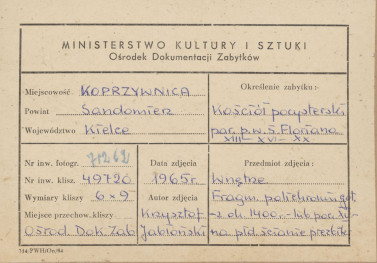 MINISTERSTWO KULTURY I SZTUKI
Ośrodek Dokumentacji Zabytków
Miejscowość KOPRZYWNICA
Powiat Sandomierz
Województwo Kielce
Określenie zabytku:
Kościół pocysterski
par. p.w. Ś. Floriana
XIII - XVI - XX
Nr inw. fotogr. 71262
Nr inw. klisz. 49720
Wymiary kliszy 6×9
Miejsce przechow. kliszy
Ośrod. Dok. Zab
Data zdjęcia
1965r.
Autor zdjęcia
Krzysztof
Jabłoński
Przedmiot zdjęcia:
Wnętrze
Fragm. polichromii got.
z ok. 1400r. lub poc. XV
na płd. ścianie prezbit.